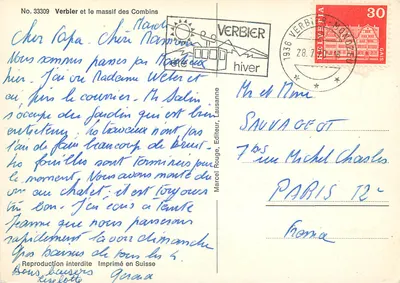 No. 33309 Verbier et le massif des Combins
Mardi
Cher Papa, Chère Maman
Nous sommes passés par Montreux
hier. J'ai vu Madame Weber et
pris le courrier. Mr Salin
s'occupe du Jardin qui est bien
entretenu; les travaux n'ont pas
l'air de faire beaucoup de bruit.
les fouilles sont terminées pour
le moment. Nous avons monté du
vin au chalet, et il est toujours
bon. J'ai écrit à tante
Jeanne que nous passerons
rapidement la voir dimanche
Gros baisers de tous les 4.
Bons baisers
Gérard
Reproduction interdite Imprimé en Suisse
Marcel Rouge, Editeur, Lausanne
VERBIER
été
hiver
1936 VERBIER
HELVETIA
30
GAIS
Mr et Mme
SAUVAGEOT
7 bis rue Michel Chasles
PARIS 12e
France